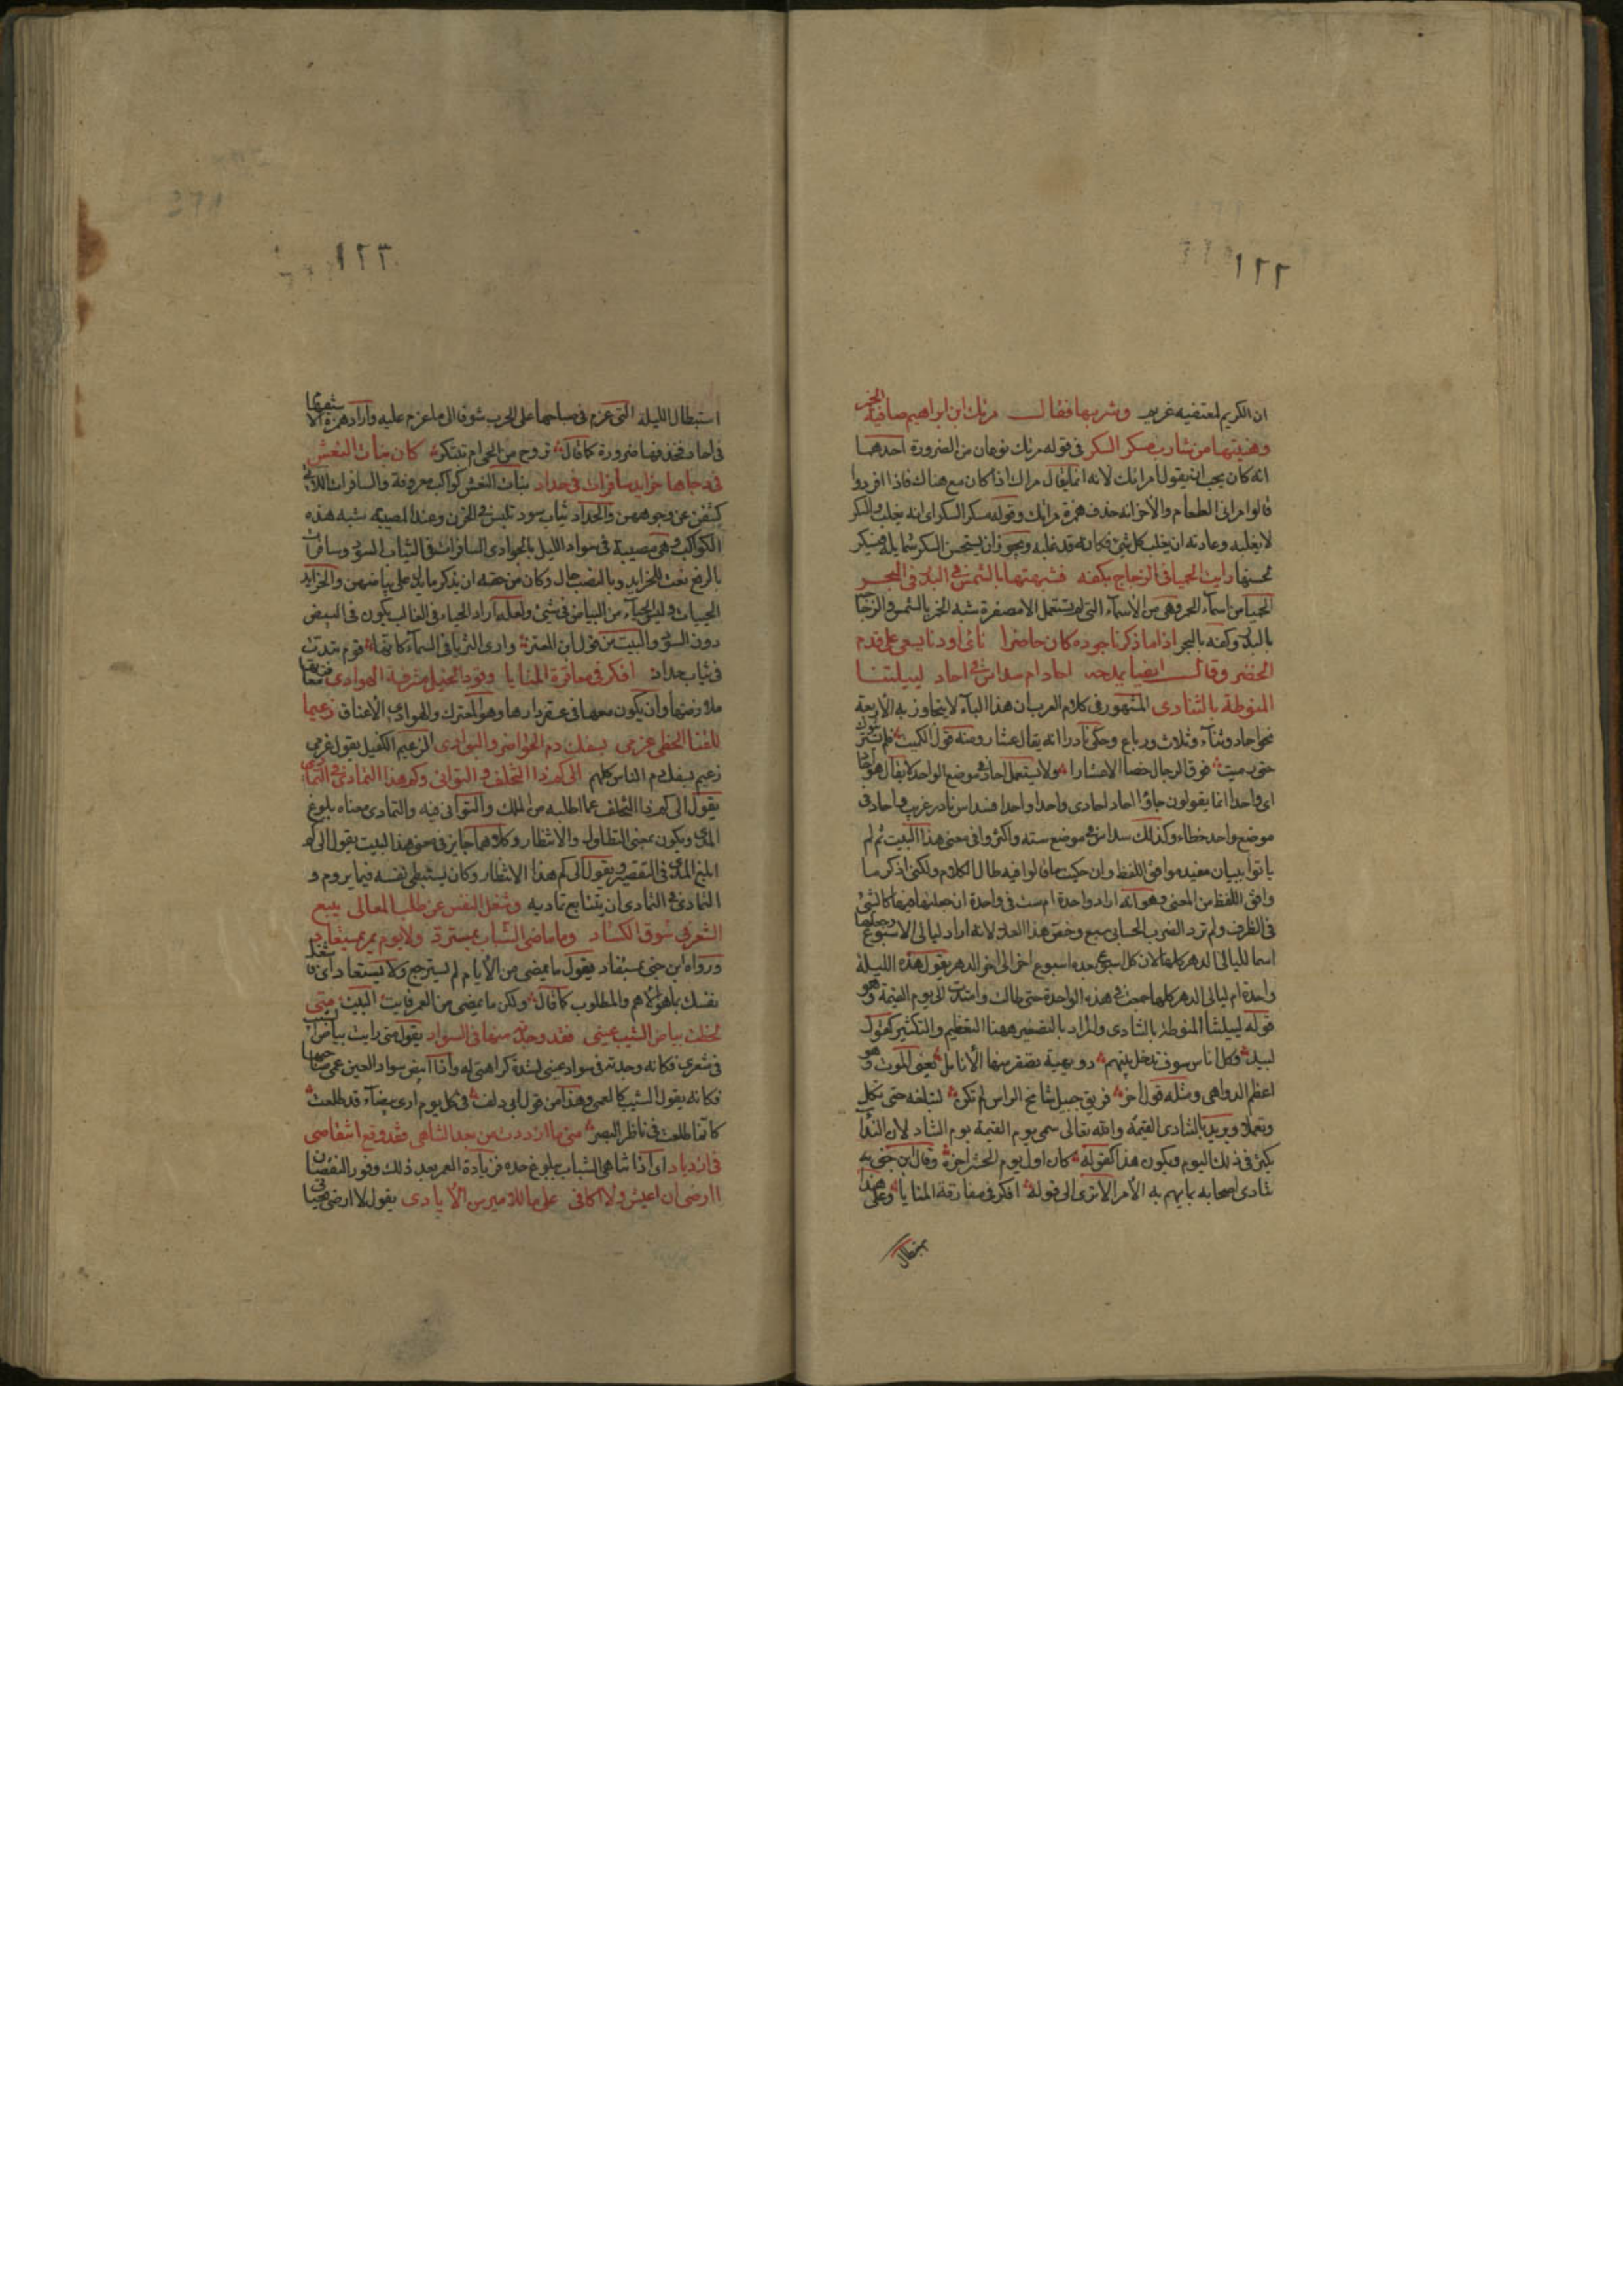 ١٢٢
ان الكريم لمعتفيه غريم وشربها فقال مرتك ابن ابراهيم صافية الخمر
وهنيتها من شارب مسكر السكر في قوله مرتك نوعان من الضرورة احدهما
انه كان يجب ان يقول امراتك لانه انما يقال مراك اذا كان مع هناك فاذا افردوا
قالوا امراني الطعام والاخر انه حذف همزة مراتك وقوله مسكر السكر اى انه يغلب السكر
لا يغلبه وعادته ان يغلب كل شئ فكانه قد غلبه ويجوز ان يستحسن السكر شمايله فيسكر
لحسنها رايت الحميا في الزجاج بكفه فشبهتها بالشمس في البدر في البحر
الحميا من اسماء الخمر وهى من الاسماء التى لم تستعمل الا مصغرة شبه الخمر بالشمس والزجاج
بالبدر وكفه بالبحر اذا ما ذكرنا جوده كان حاضرا ناى او دنا يسعى على قدم
الخضر وقال ايضا يمدحه احاد ام سداس في احاد لييلتنا
المنوطة بالتنادى المشهور في كلام العرب ان هذا البناء لا يتجاوز به الاربعة
نحو احاد وثناء وثلاث ورباع وحكى نادرا انه يقال عشار ومنه قول الكميت فلم يستريثوك
حتى رميت فوق الرجال خصالا عشارا ولا يستعمل احاد في موضع الواحد لا يقال هو احاد
اى واحد انما يقولون جاؤا احاد احادى واحدا واحدا فسداس نادر غريب واحاد في
موضع واحد خطاء وكذلك سداس في موضع ستة واكثروا في معنى هذا البيت ثم لم
ياتوا ببيان مفيد موافق اللفظ وان حكيت ما قالوا فيه طال الكلام ولكنى اذكر ما
وافق اللفظ من المعنى وهو انه اراد واحدة ام ست في واحدة ان جعلتها فيها كالشئ
في الظرف ولم ترد الضرب الحسابى سبع وخص هذا العدد لانه اراد ليالى الاسبوع وجعلها
اسما لليالى الدهر كلها لان كل اسبوع بعده اسبوع اخر الى اخر الدهر يقول هذه الليلة
واحدة ام ليالى الدهر كلها جمعت في هذه الواحدة حتى طالت وامتدت الى يوم القيمة وهو
قوله لييلتنا المنوطة بالتنادى والمراد بالتصغير ههنا التعظيم والتكثير كقول
لبيد وكل اناس سوف تدخل بينهم دويهية تصفر منها الانامل يعنى الموت وهو
اعظم الدواهى ومثله قول اخر فويق جبيل شامخ الراس لم تكن لتبلغه حتى تكل
وتعملا ويريد بالتنادى القيمة والله تعالى سمى يوم القيمة يوم التناد لان النداء
يكثر في ذلك اليوم ويكون هذا كقوله كان اول يوم الحشر اخره وقال ابن جنى يريد
تنادى اصحابه بما يهم به الا ترى الى قوله افكر في معاقرة المنايا وعلى هذا
استطال
١٢٣
استبطال الليلة التى عزم في صباحها على الحرب شوقا الى ما عزم عليه واراد همزة الاستفهام
في احاد فحذفها ضرورة كما قال تروح من الحى ام تبتكر كان بنات النعش
في دجاها خرايد سافرات في حداد بنات النعش كواكب معروفة والسافرات اللاتى
كشفن عن وجوههن والحداد ثياب سود تلبس في الحزن وعند المصيبة شبه هذه
الكواكب وهى مضيئة في سواد الليل بالجوارى السافرات في الثياب السود وسافرات
بالرفع نعت للخرايد وبالنصب حال وكان من حقه ان يذكر ما يدل على بياضهن والخرايد
الحييات وليس الحياء من البياض في شئ ولعله اراد الحياء في الغالب يكون في البيض
دون السود والبيت من قول ابن المعتز وارى الثريا في السماء كانها قدم تبدت
في ثياب حداد افكر في معاقرة المنايا وقود الخيل مشرفة الهوادى معاقرتها
ملازمتها وان يكون معها في عقر دارها وهو المعترك والهوادى الاعناق زعيما
للقنا الخطى عزمى بسفك دم الحواضر والبوادى الزعيم الكفيل يقول عزمى
زعيم بسفك دم الناس كلهم الى كم ذا التخلف والتوانى وكم هذا التمادى في التمادى
يقول الى كم ذا التخلف عما اطلبه من الملك والتوانى فيه والتمادى معناه بلوغ
المدى ويكون بمعنى التطاول والانتظار وكلاهما جايز في معنى هذا البيت يقول الى كم
ابلغ المدى في التقصير ويقول الى كم هذا الانتظار وكان يستبطى نفسه فيما يروم و
التمادى في التمادى ان يتتابع تماديه وشغل النفس عن طلب المعالى ببيع
الشعر في سوق الكساد وما ماضى الشباب بمسترد ولا يوم يمر بمستعاد
ورواه ابن جنى بمستفاد يقول ما يمضى من الايام لم يسترجع ولا يستعاد اى فاشغل
نفسك بما هو الاهم والمطلوب كما قال ولكن ما يمضى من العمر فايت البيت متى
لحظت بياض الشيب عينى فقد وجدته منها في السواد يقول متى رايت بياض الشيب
في شعرى فكانه وجدته في سواد عينى لشدة كراهتى له واذا ابيض سواد العين عمى صاحبها
فكانه يقول الشيب كالعمى وهذا من قول ابى دلف في كل يوم ارى بيضاء قد طلعت
كانما طلعت في ناظر البصر متى ما ازددت من بعد التناهى فقد وقع انتقاصى
في ازدياد اى اذا تناهى الشباب ببلوغ حده فزيادة العمر بعد ذلك وفور النقصان
اارضى ان اعيش ولا اكافى على ما للامير من الايادى يقول لا ارضى بحياتى